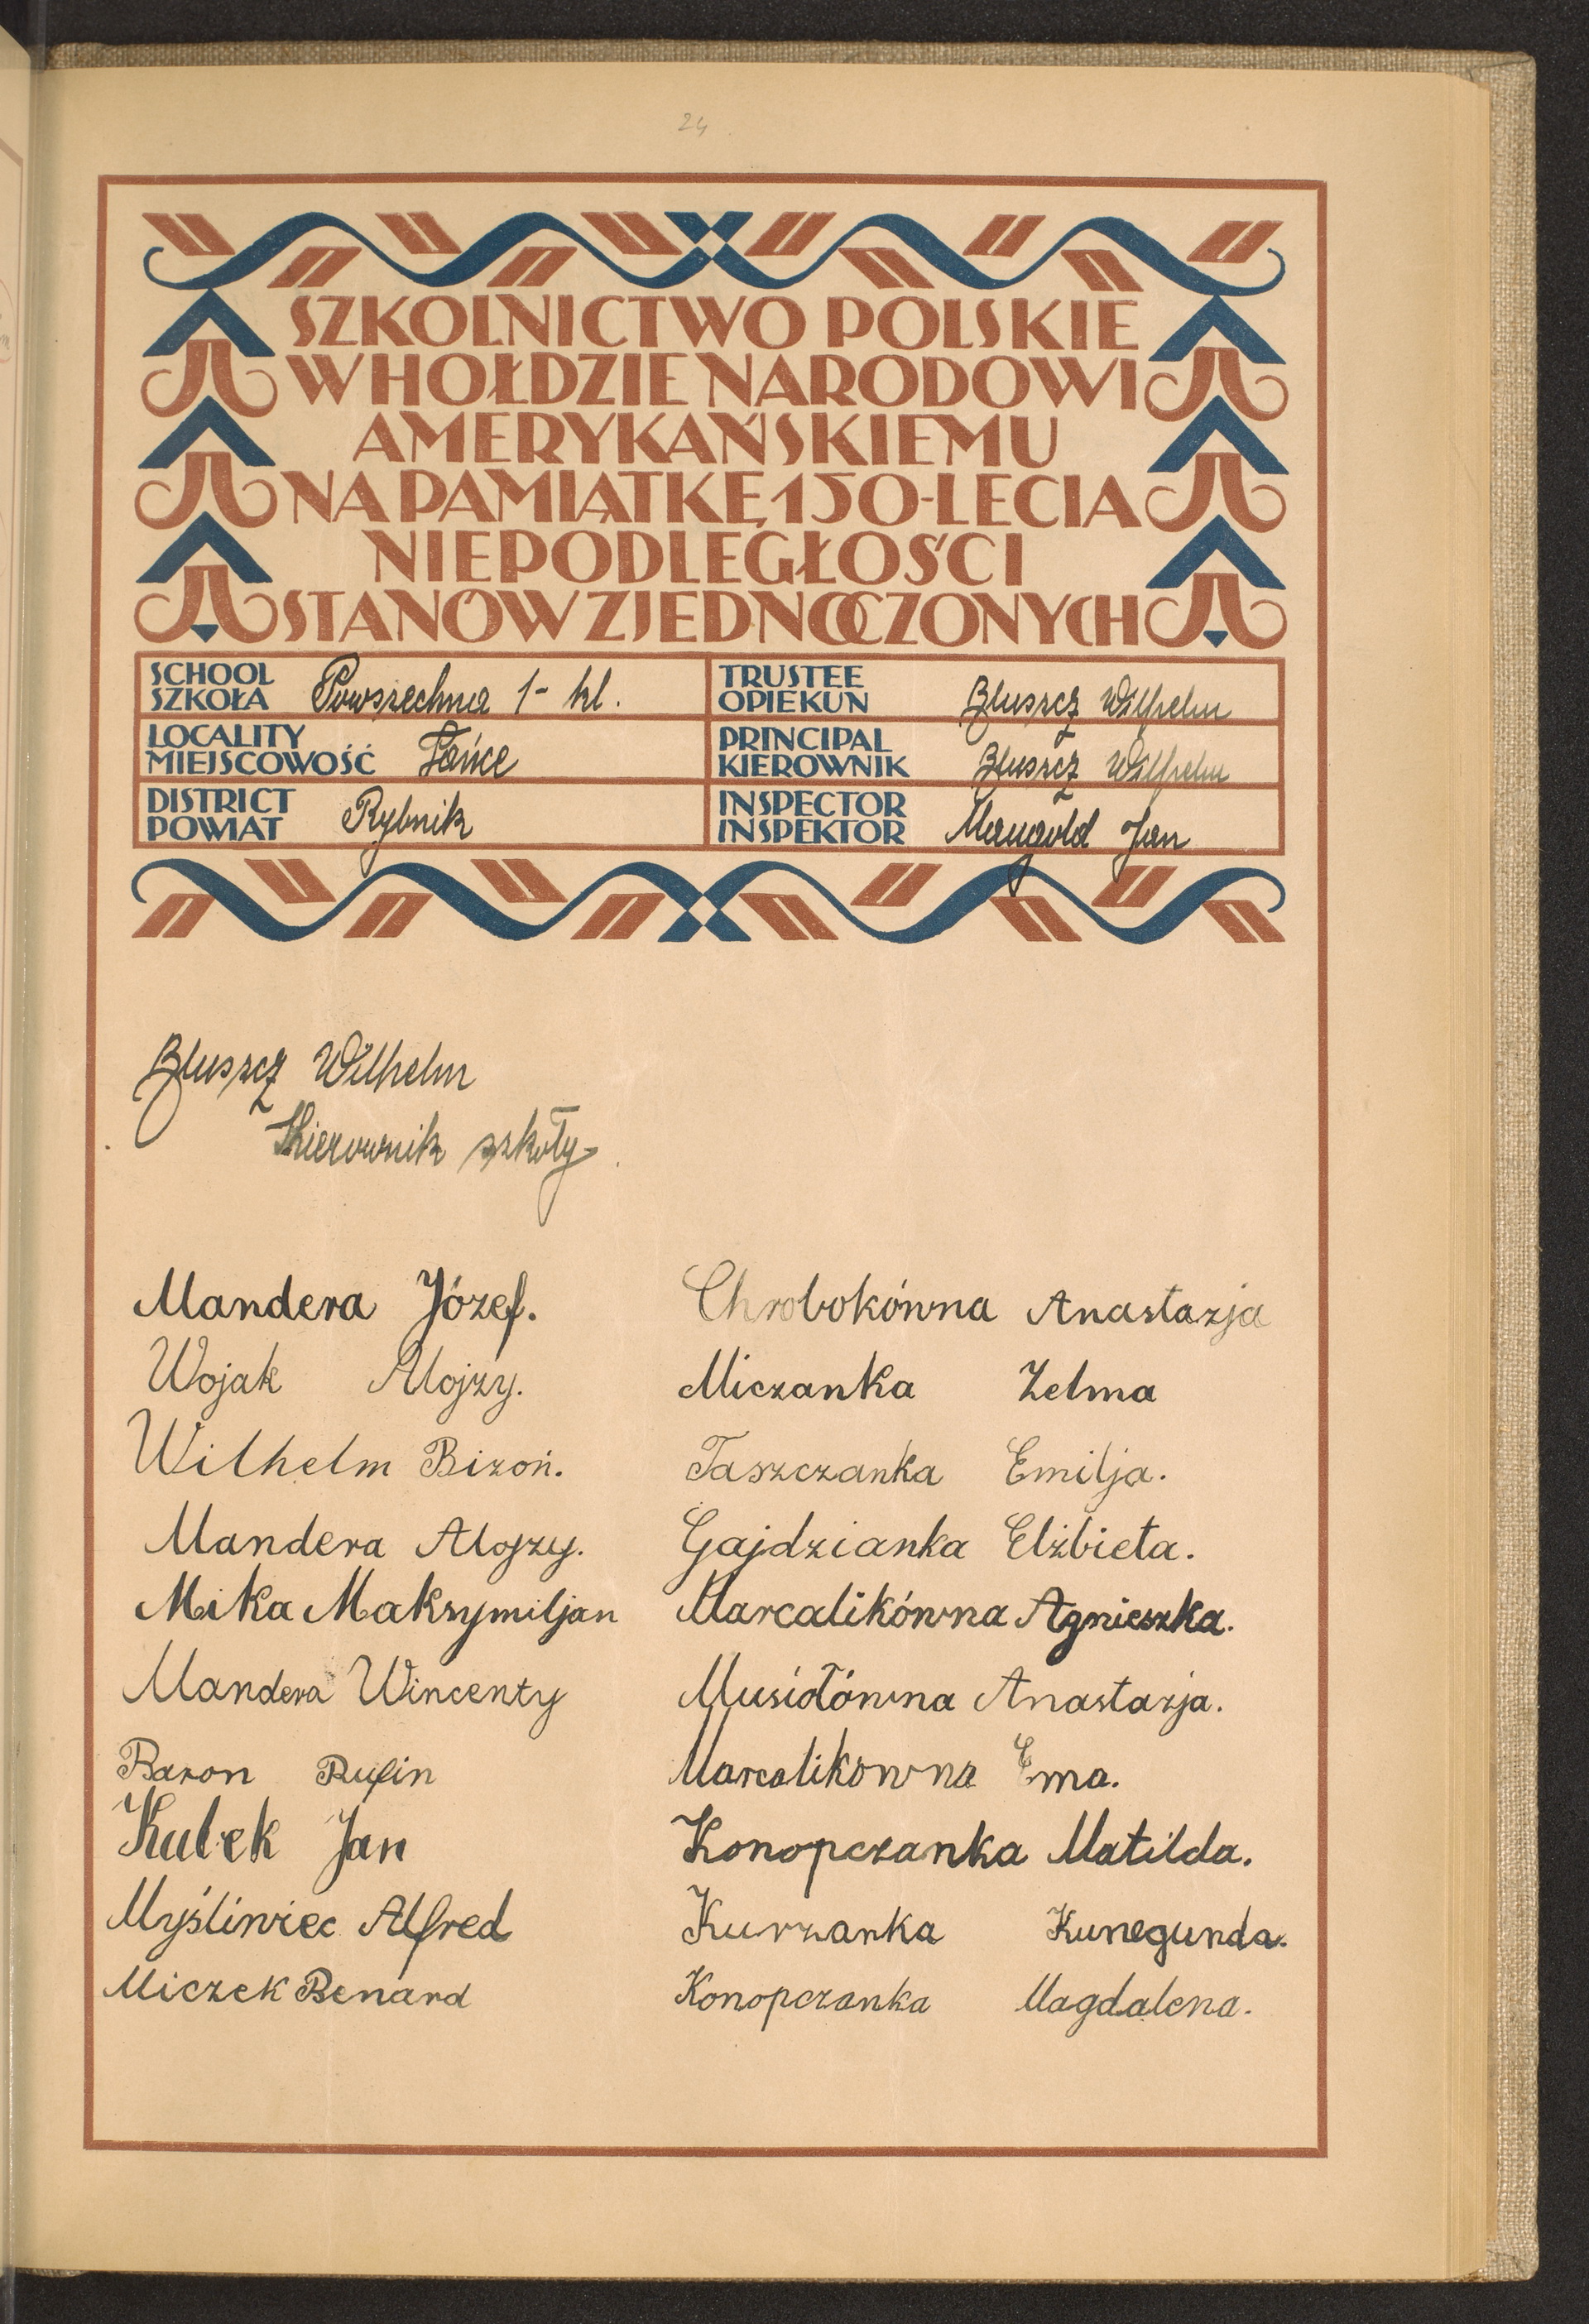 24
SZKOLNICTWO POLSKIE
W HOŁDZIE NARODOWI
AMERYKAŃSKIEMU
NA PAMIĄTKĘ 150-LECIA
NIEPODLEGŁOŚCI
STANÓW ZJEDNOCZONYCH
SCHOOL
SZKOŁA Powszechna 1-kl.
TRUSTEE
OPIEKUN Bluszcz Wilhelm
LOCALITY
MIEJSCOWOŚĆ Łańce
PRINCIPAL
KIEROWNIK Bluszcz Wilhelm
DISTRICT
POWIAT Rybnik
INSPECTOR
INSPEKTOR Mangold Jan
Bluszcz Wilhelm
Kierownik szkoły.
Mandera Józef.
Wojak Alojzy.
Wilhelm Bizoń.
Mandera Alojzy.
Mika Maksymiljan
Mandera Wincenty
Baron Rufin
Kubek Jan
Myśliwiec Alfred
Miczek Benard
Chrobokówna Anastazja
Miczanka Zelma
Taszczanka Emilja.
Gajdzianka Elżbieta.
Marcalikówna Agnieszka.
Musiółówna Anastazja.
Marcalikowna Ema.
Konopczanka Matilda.
Kurzanka Kunegunda.
Konopczanka Magdalena.